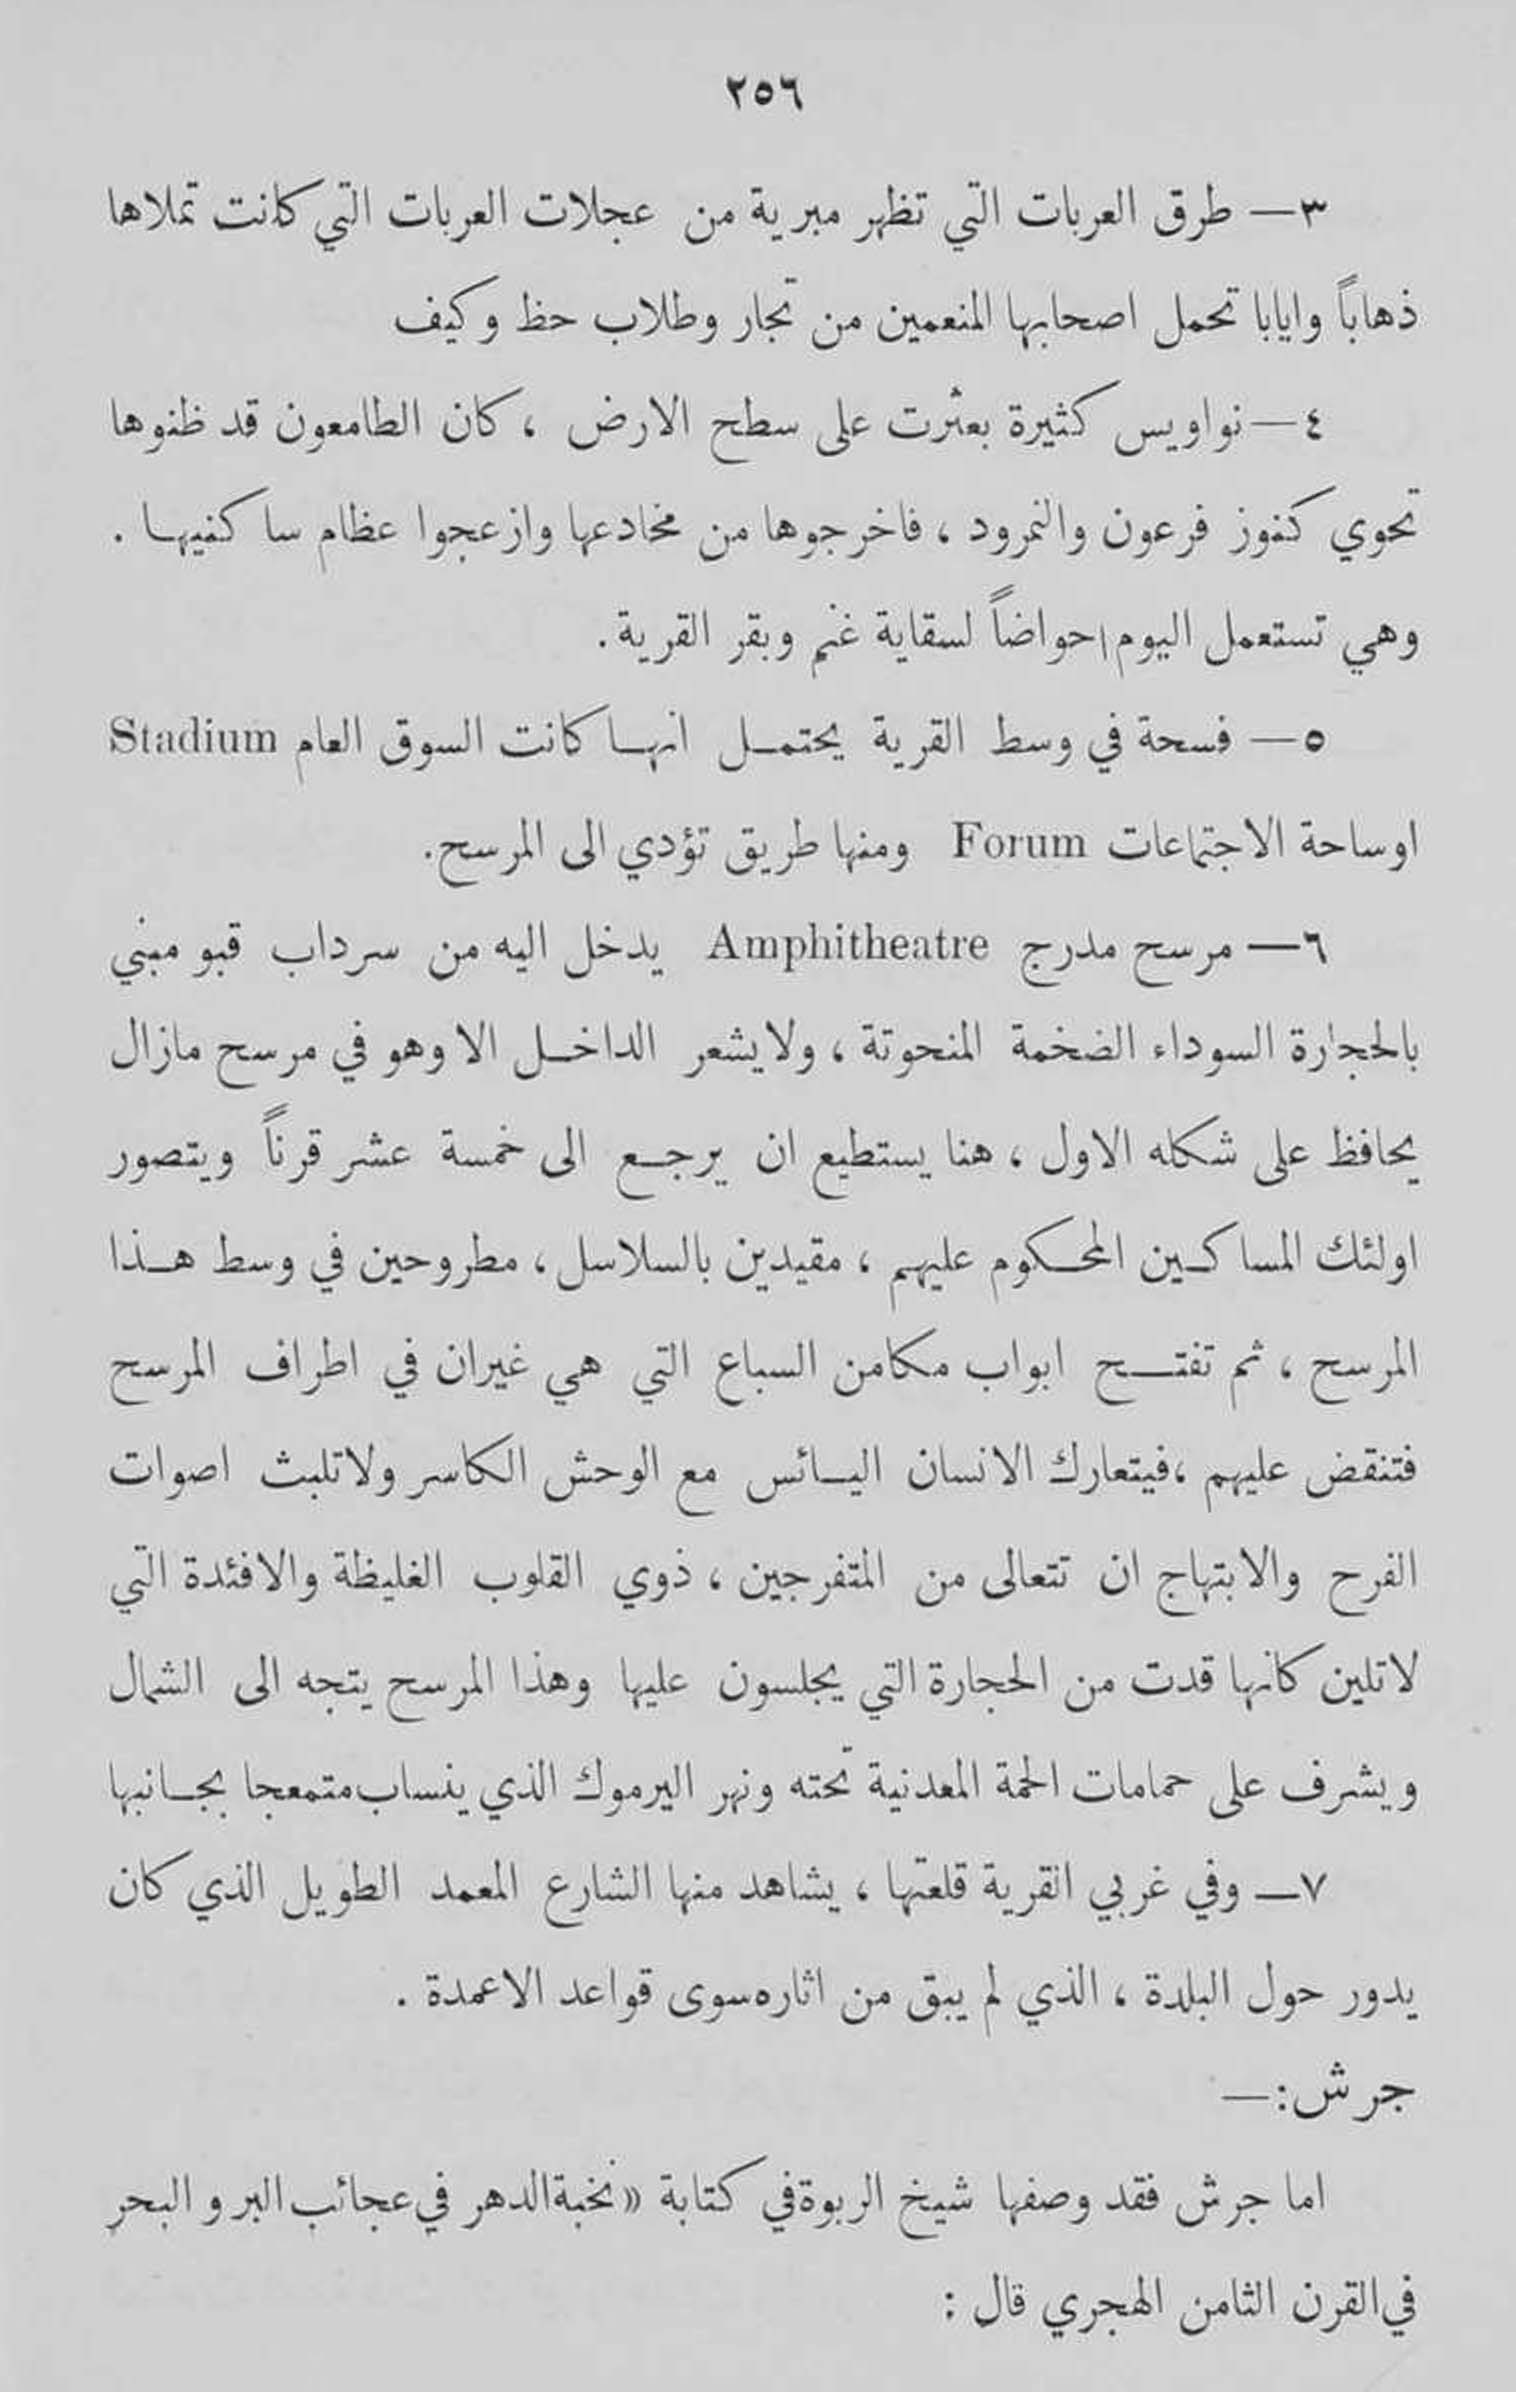 ٢٥٦
٣— طرق العربات التي تظهر مبرية من عجلات العربات التي كانت تملاها
ذهاباً وايابا تحمل اصحابها المنعمين من تجار وطلاب حظ وكيف
٤— نواويس كثيرة بعثرت على سطح الارض ، كان الطامعون قد ظنوها
تحوي كنوز فرعون والنمرود ، فاخرجوها من مخادعها وازعجوا عظام ساكنيها .
وهي تستعمل اليوم احواضاً لسقاية غنم وبقر القرية .
٥— فسحة في وسط القرية يحتمل انها كانت السوق العام Stadium
اوساحة الاجتماعات Forum ومنها طريق تؤدي الى المرسح.
٦— مرسح مدرج Amphitheatre يدخل اليه من سرداب قبو مبني
بالحجارة السوداء الضخمة المنحوتة ، ولا يشعر الداخل الا وهو في مرسح مازال
يحافظ على شكله الاول ، هنا يستطيع ان يرجع الى خمسة عشر قرناً ويتصور
اولئك المساكين المحكوم عليهم ، مقيدين بالسلاسل ، مطروحين في وسط هذا
المرسح ، ثم تفتح ابواب مكامن السباع التي هي غيران في اطراف المرسح
فتنقض عليهم ، فيتعارك الانسان اليائس مع الوحش الكاسر ولا تلبث اصوات
الفرح والابتهاج ان تتعالى من المتفرجين ، ذوي القلوب الغليظة والافئدة التي
لاتلين كانها قدت من الحجارة التي يجلسون عليها وهذا المرسح يتجه الى الشمال
ويشرف على حمامات الحمة المعدنية تحته ونهر اليرموك الذي ينساب متمعجا بجانبها
٧— وفي غربي القرية قلعتها ، يشاهد منها الشارع المعمد الطويل الذي كان
يدور حول البلدة ، الذي لم يبق من اثاره سوى قواعد الاعمدة .
جرش :—
اما جرش فقد وصفها شيخ الربوة في كتابة «نخبة الدهر في عجائب البر والبحر
في القرن الثامن الهجري قال :